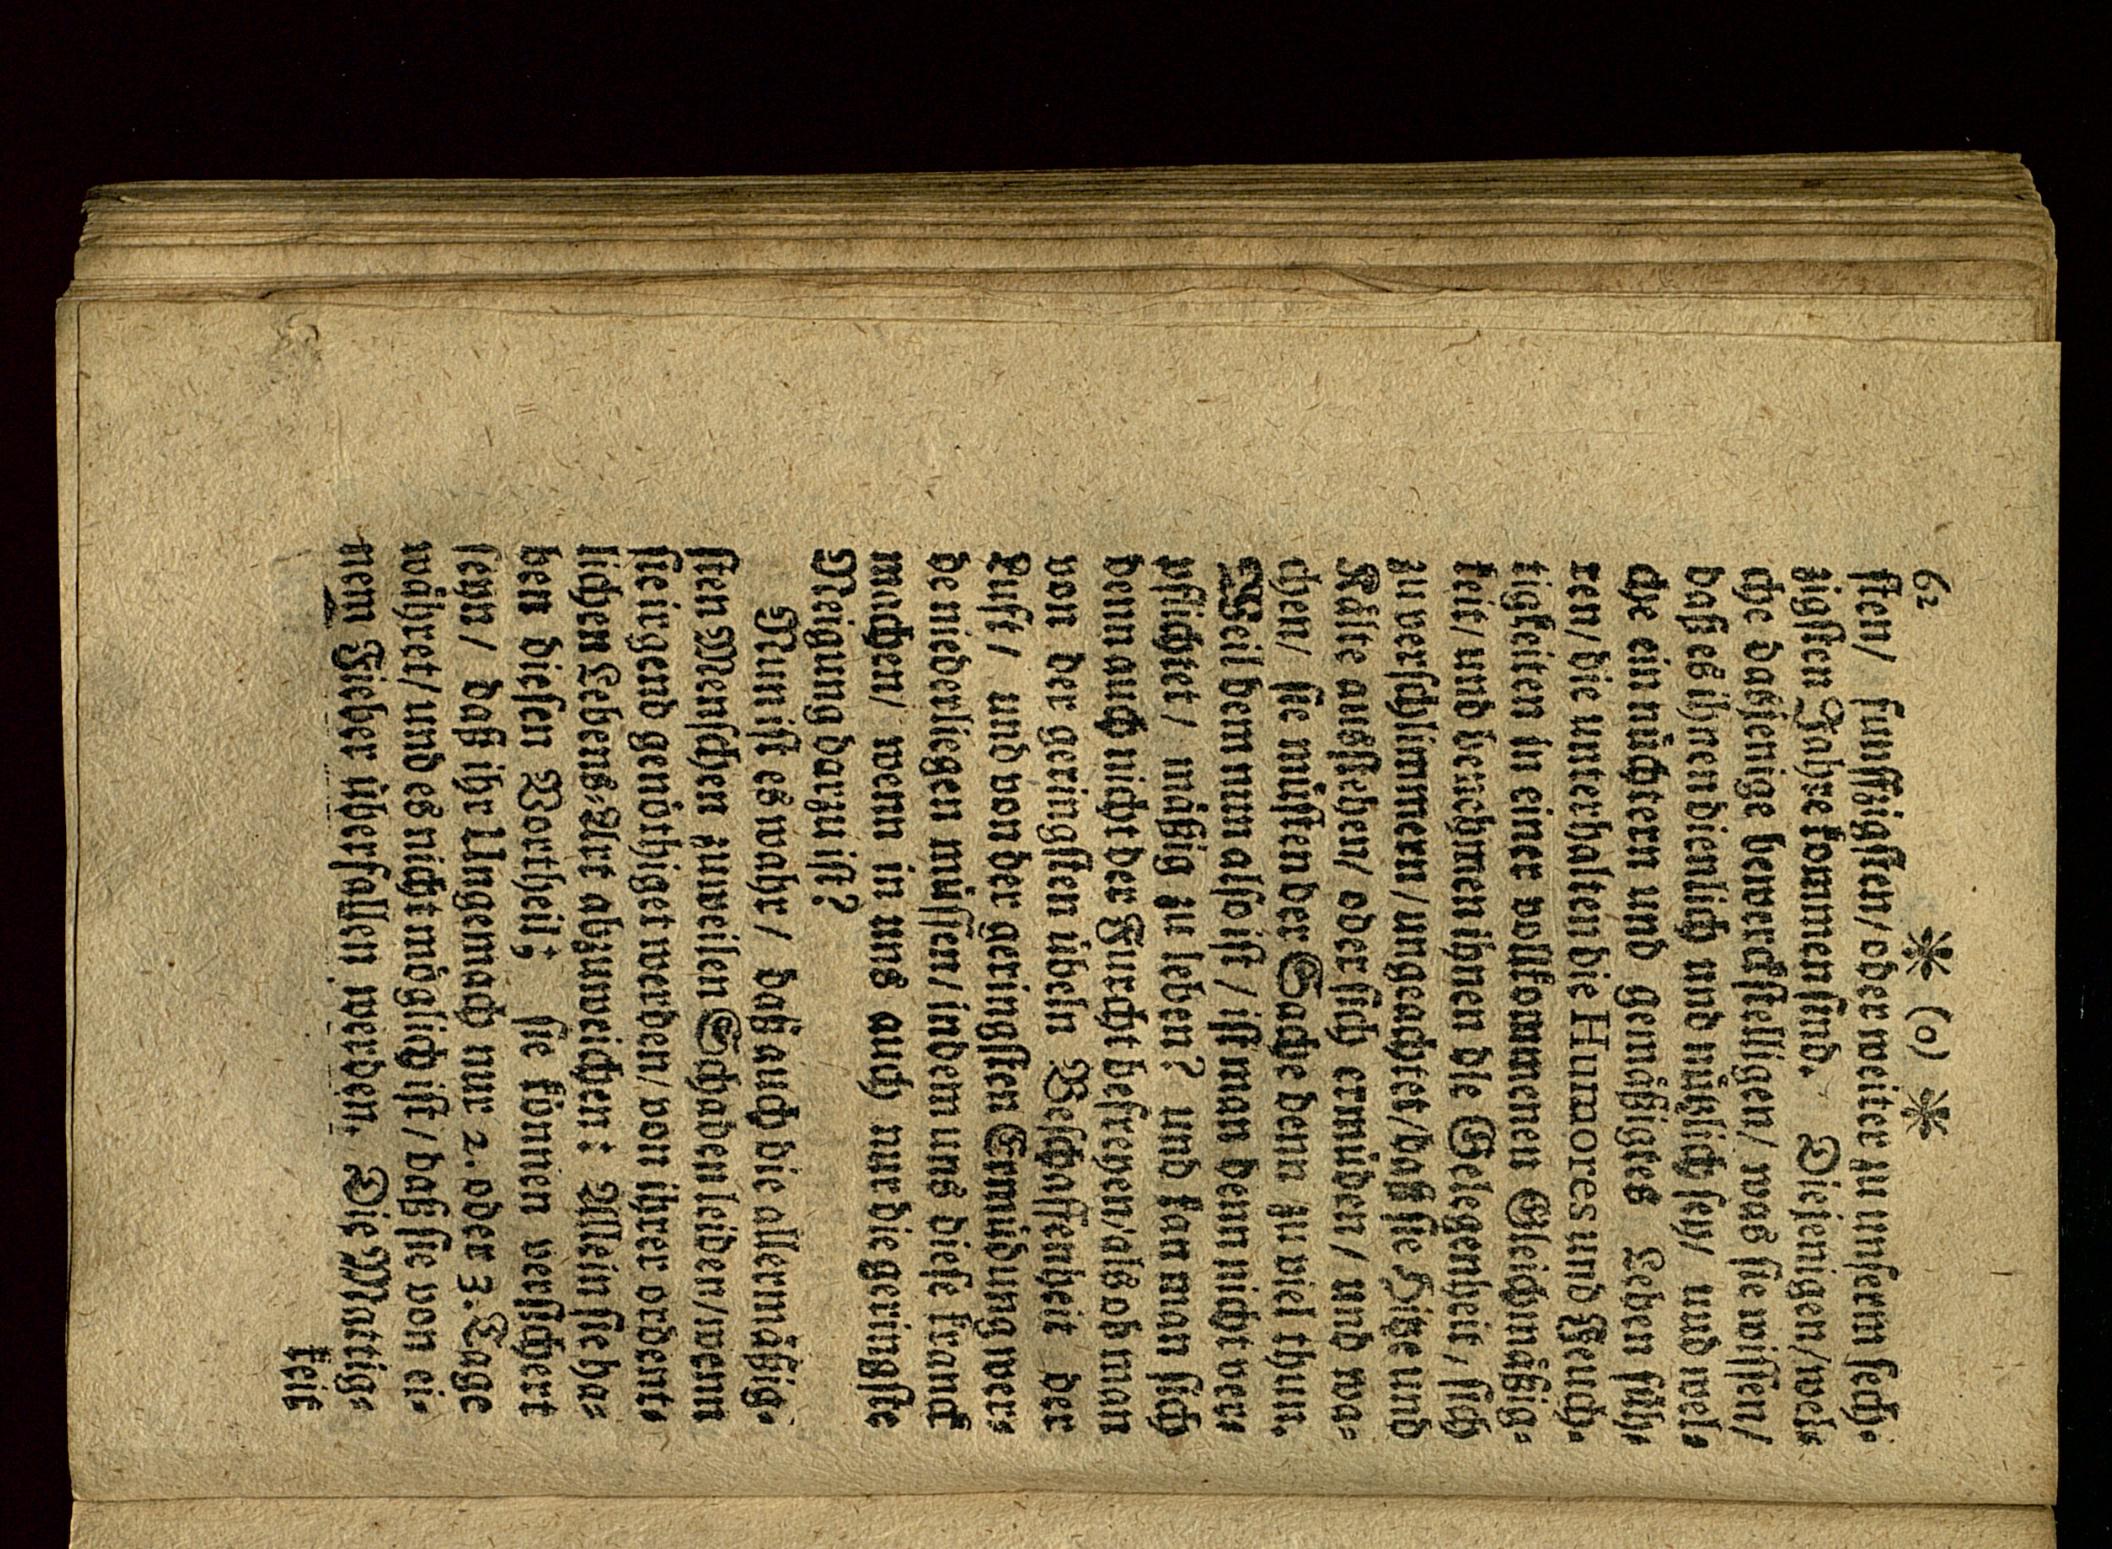 62 ✻ (o) ✻
sten/ funffzigsten/ oder weiter zu unserm sech-
zigsten Jahre kommen sind. Diejenigen/ wel-
che dasjenige bewerckstelligen/ was sie wissen/
daß es ihnen dienlich und nützlich sey/ und wel-
che ein nüchtern und gemäßigtes Leben füh-
ren/ die unterhalten die Humores und Feuch-
tigkeiten in einer vollkommenen Gleichmäßig-
keit/ und benehmen ihnen die Gelegenheit/ sich
zu verschlimmern/ ungeachtet/ daß sie Hitze und
Kälte ausstehen/ oder sich ermüden/ und wa-
chen/ sie müsten der Sache denn zu viel thun.
Weil dem nun also ist/ ist man denn nicht ver-
pflichtet/ mäßig zu leben? und kan man sich
denn auch nicht der Furcht befreyen/ als ob man
von der geringsten übeln Beschaffenheit der
Lufft/ und von der geringsten Ermüdung wer-
de niederliegen müssen/ indem uns diese kranck
machen/ wenn in uns auch nur die geringste
Neigung darzu ist?
Nun ist es wahr/ daß auch die allermäßig-
sten Menschen zuweilen Schaden leiden/ wenn
sie irgend genöthiget werden/ von ihrer ordent-
lichen Lebens-Art abzuweichen: Allein sie ha-
ben diesen Vortheil; sie können versichert
seyn/ daß ihr Ungemach nur 2. oder 3. Tage
währet/ und es nicht möglich ist/ daß sie von ei-
nem Fieber überfallen werden. Die Mattig-
keit